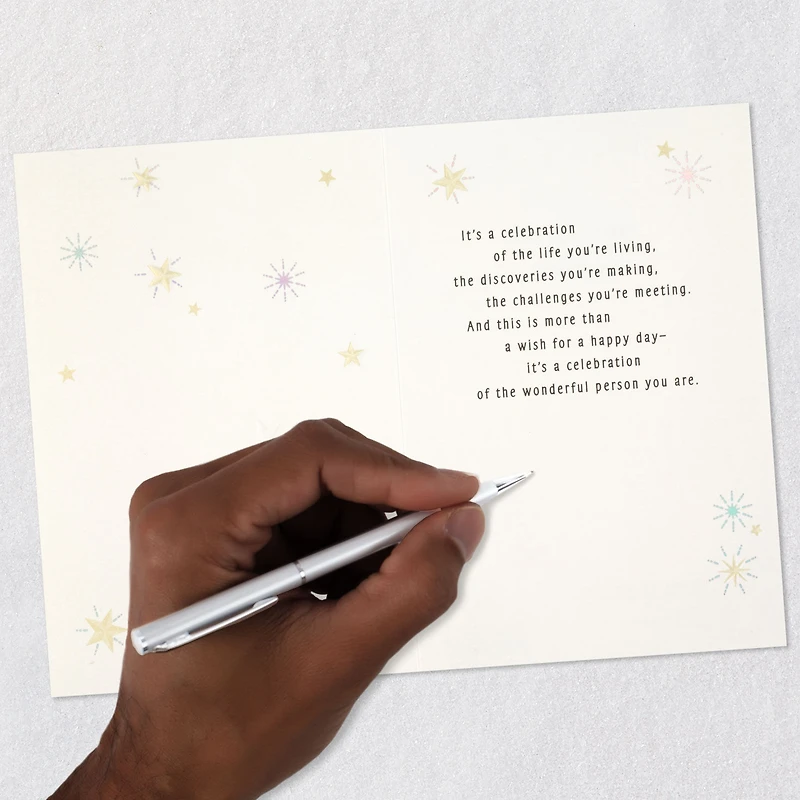 It's a celebration
of the life you're living,
the discoveries you're making,
the challenges you're meeting.
And this is more than
a wish for a happy day–
it's a celebration
of the wonderful person you are.